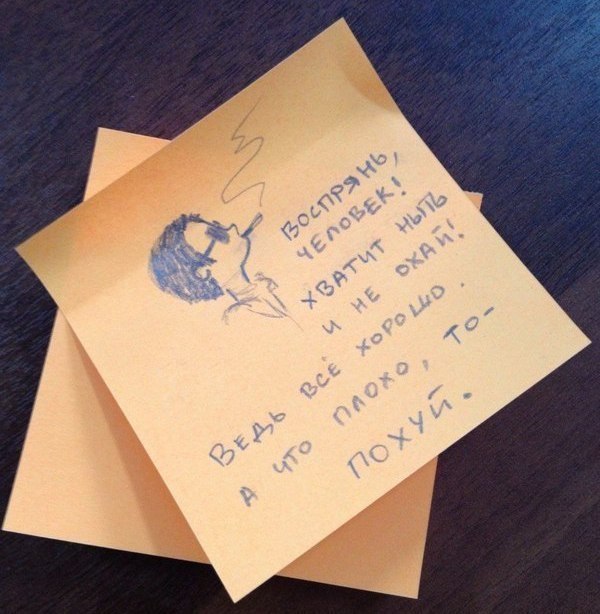 ВОСПРЯНЬ,
ЧЕЛОВЕК!
ХВАТИТ НЫТЬ
И НЕ ОХАЙ!
ВЕДЬ ВСЁ ХОРОШО.
А ЧТО ПЛОХО, ТО-
ПОХУЙ.